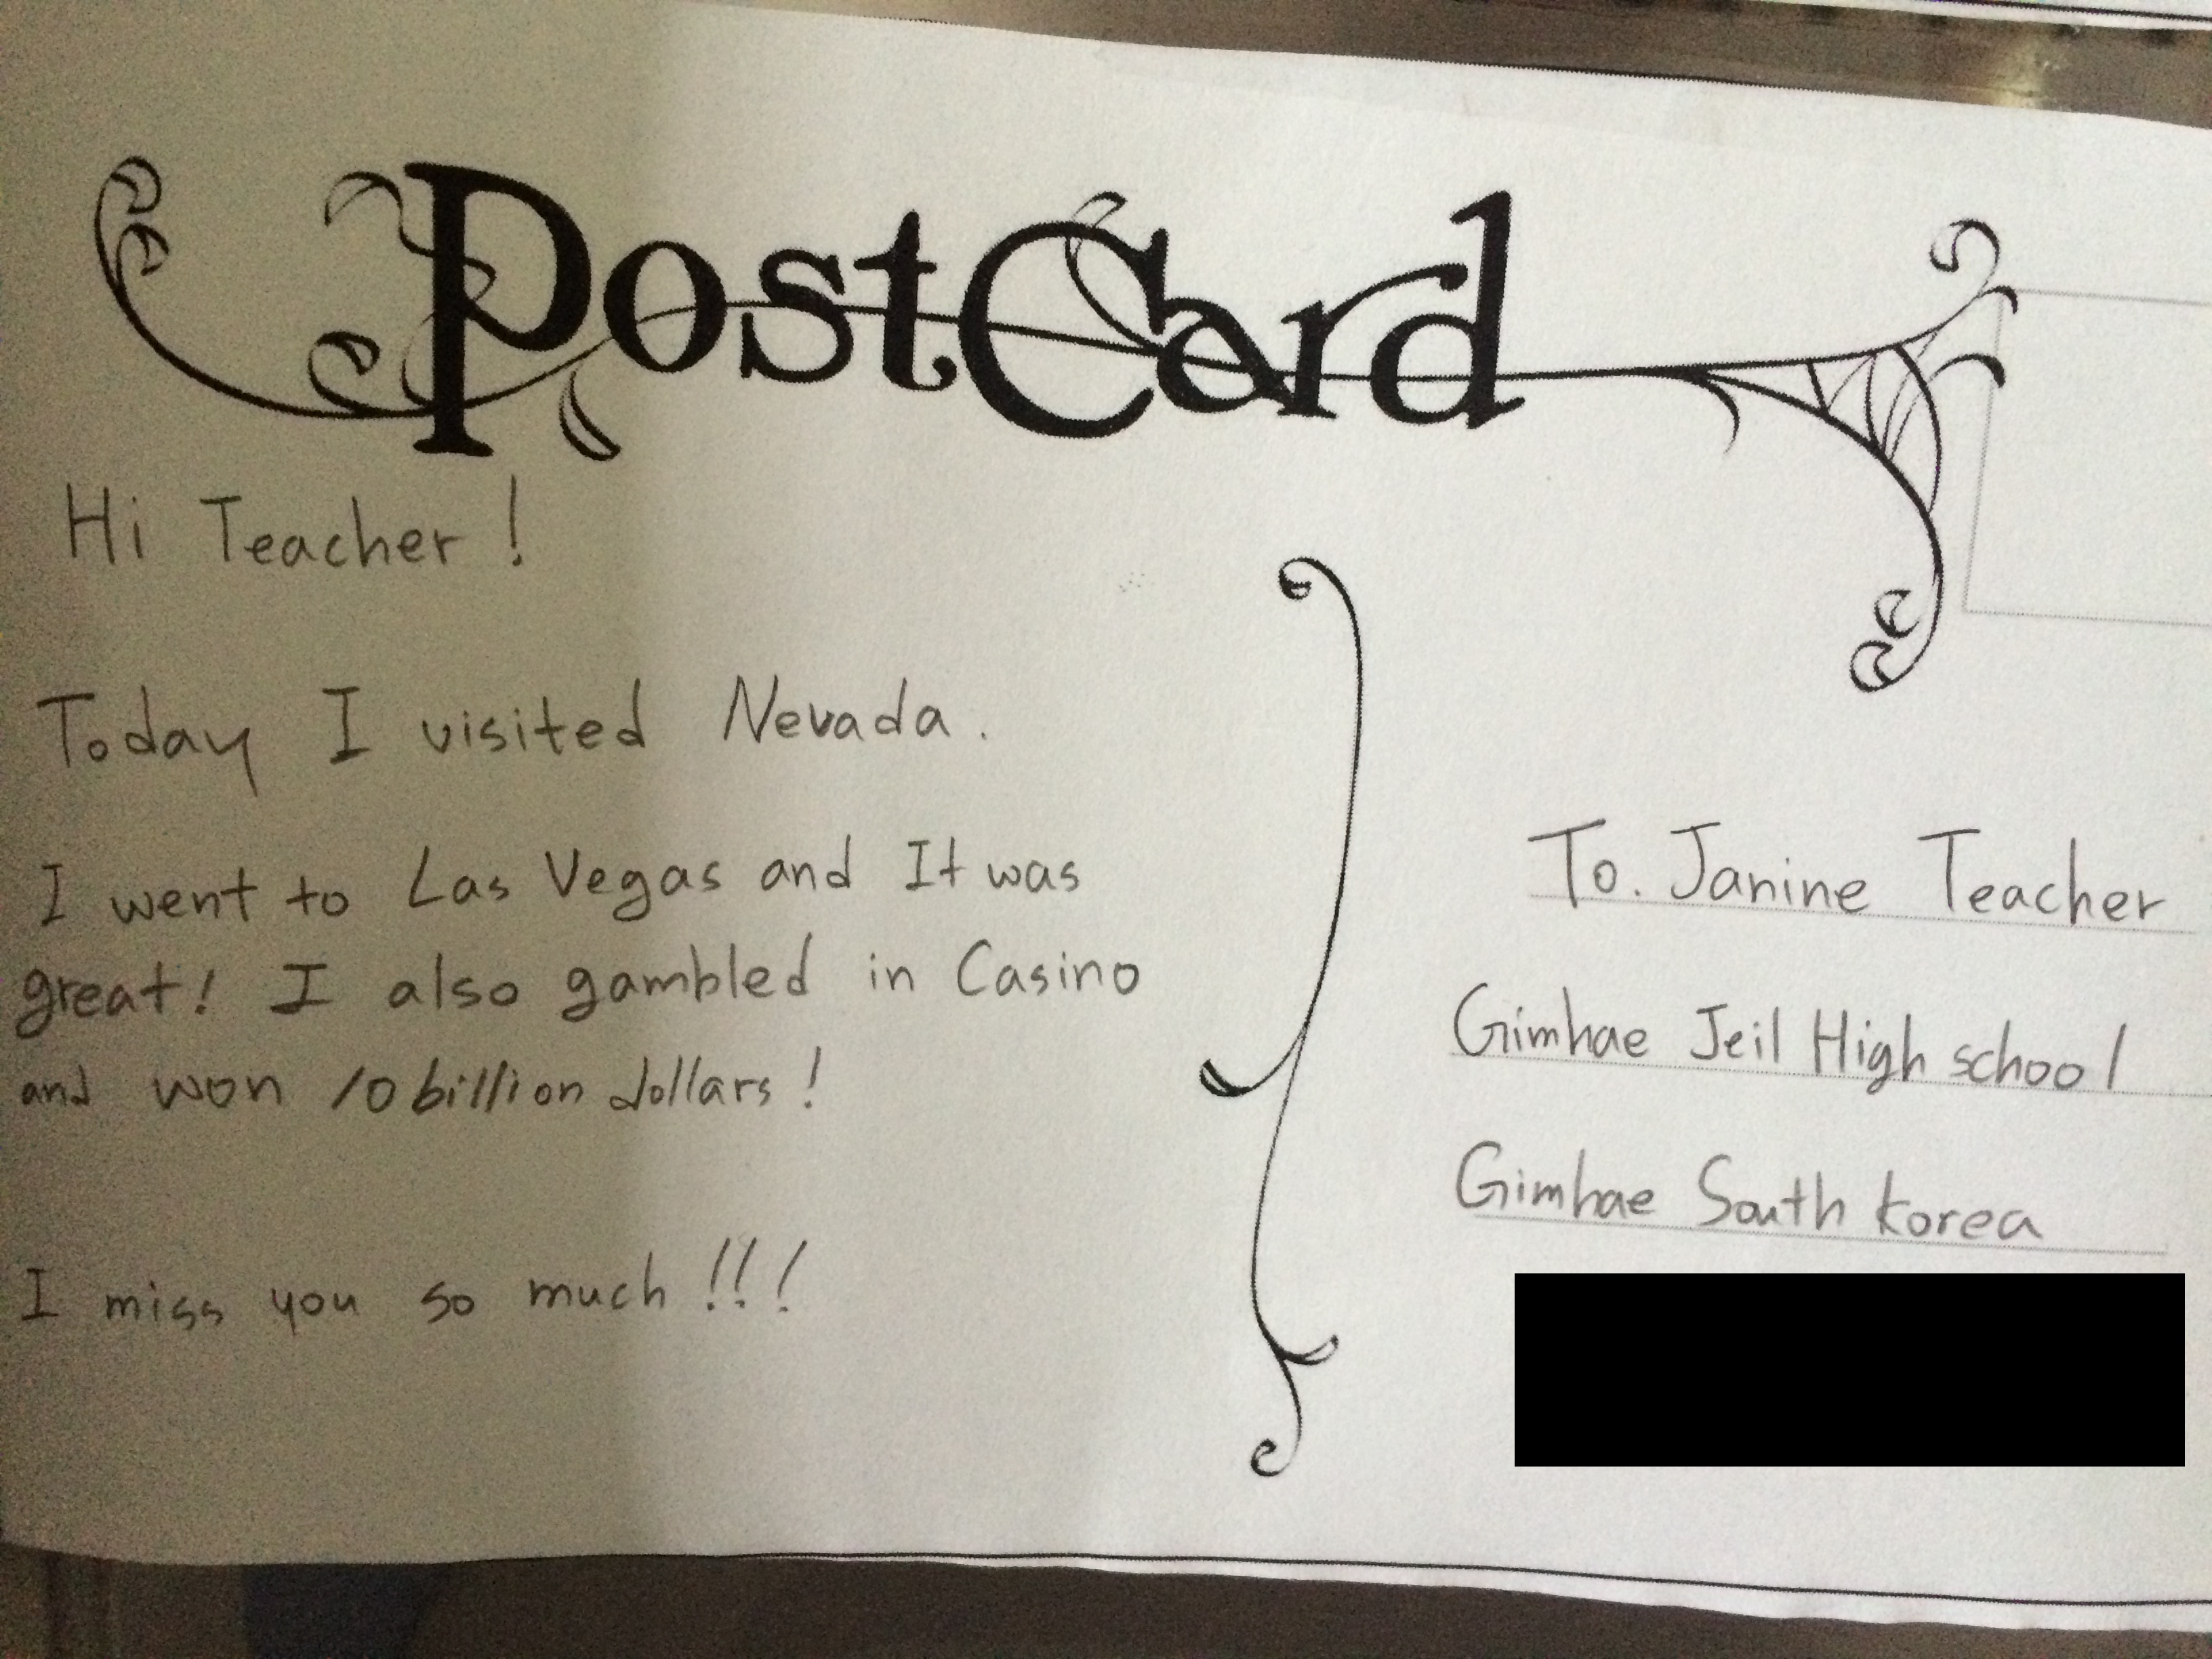 PostCard
Hi Teacher!
Today I visited Nevada.
I went to Las Vegas and It was
great! I also gambled in Casino
and won 10 billion dollars!
I miss you so much!!!
To. Janine Teacher
Gimhae Jeil High school
Gimhae South korea